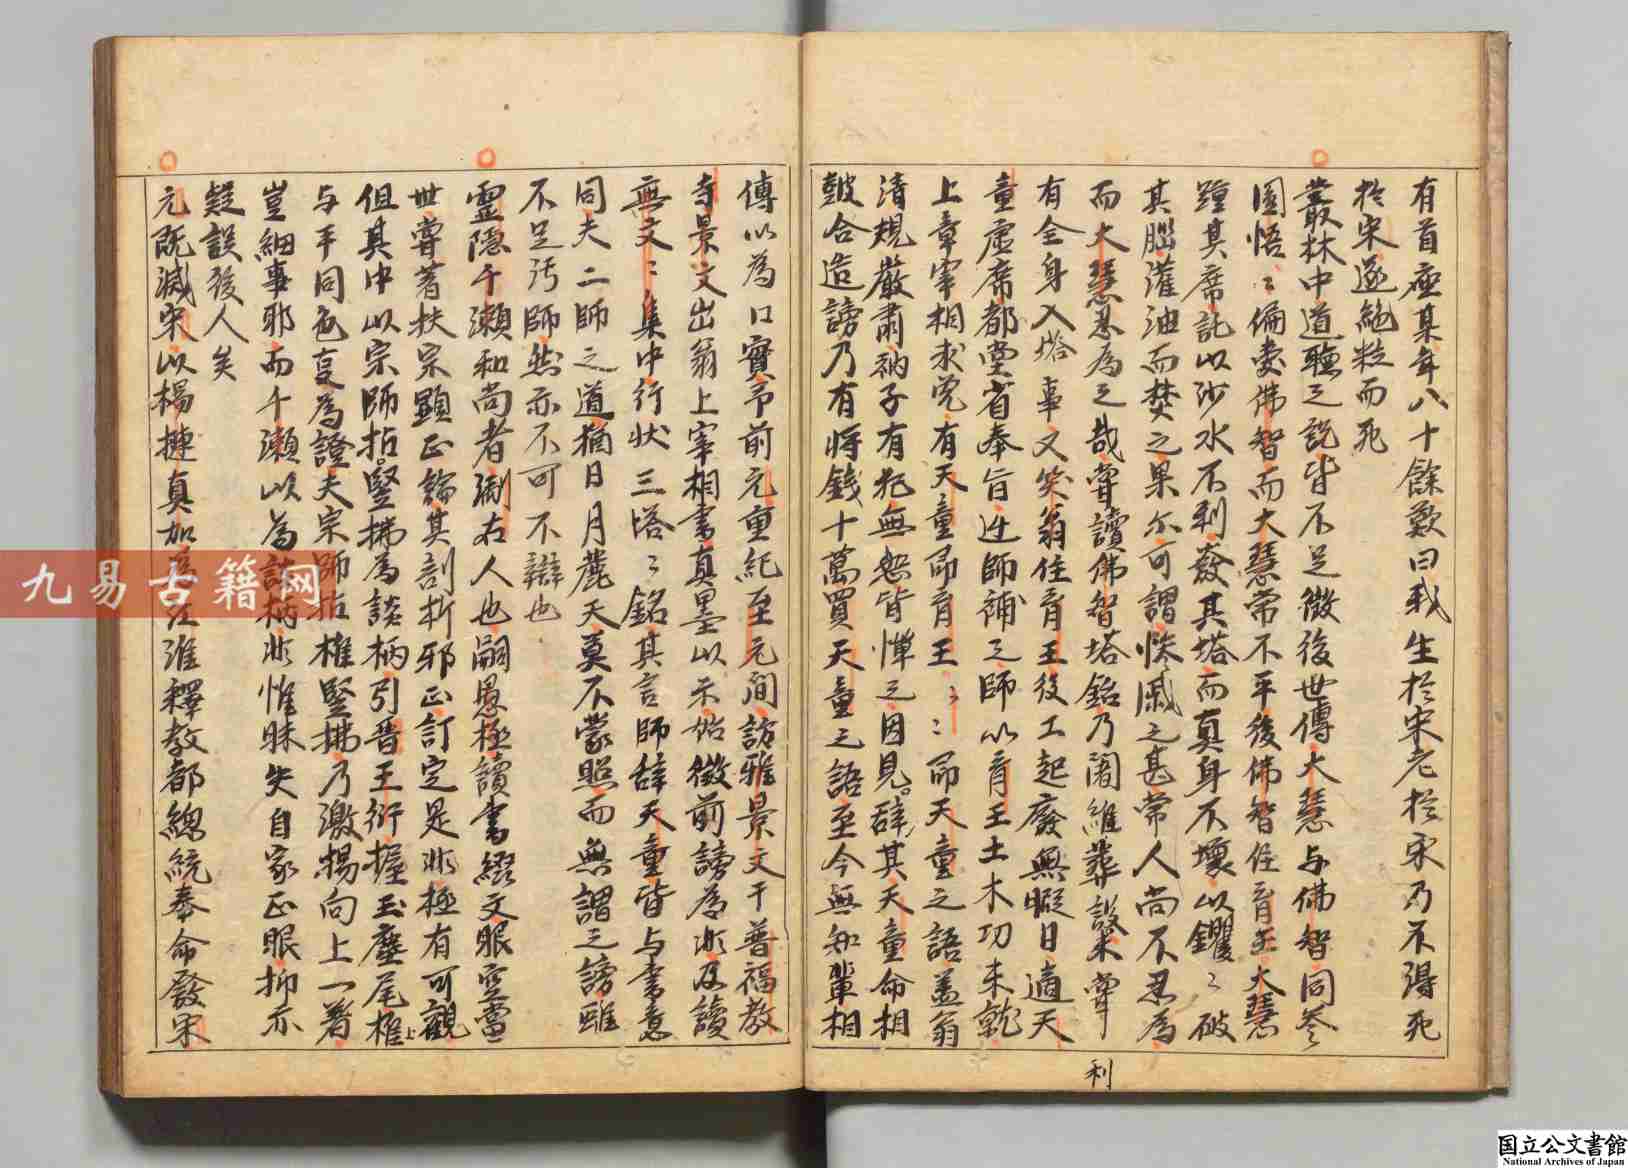 有首座某年八十餘歎曰我生於宋老於宋乃不得死
於宋遂絕粒而死
叢林中道聽之説皆不足徵後世傳大慧与佛智同參
圜悟〻偏愛佛智而大慧常不平後佛智住育王大慧
踵其席託以沙水不利發其塔而真身不壞以钁〻破
其腦灌油而焚之果尔可謂慘虐之甚常人尚不忍為
而大慧忍為之哉嘗讀佛智塔銘乃闍維葬設朱嘗
有全身入塔事又笑翁住育王後工起廢無暇日適天
童虛席都堂省奉旨迁師補之師以育王土木功未乾
上章宰相求免有天童即育王〻〻即天童之語盖翁
清規嚴肅衲子有犯無恕皆憚之因見辞其天童命相
皷合造謗乃有將錢十萬買天童之語至今無知輩相
傳以為口實予前元重紀至元間訪雅景文于普福教
寺景文出翁上宰相書真墨以示始徵前謗為非及讀
無文〻集中行状三塔〻銘其言師辞天童皆与書意
同夫二師之道猶日月麗天莫不蒙照而無謂之謗雖
不足污師然亦不可不辯也
靈隱千瀬和尚者淛右人也嗣愚極讀書綴文眼空當
世嘗著扶宗顯正論其剖析邪正訂定是非極有可觀
但其中以宗師拈竪拂為談柄引晋王衍握玉麈尾椎上
与手同色㕝為證夫宗師拈椎竪拂乃激揚向上一著
豈細事耶而千瀬以為談柄非惟昧失自家正眼抑亦
疑誤後人矣
元既滅宋以楊璉真加為江淮釋教都緫統奉命發宋
利
九易古籍网
国立公文書館
National Archives of Japan